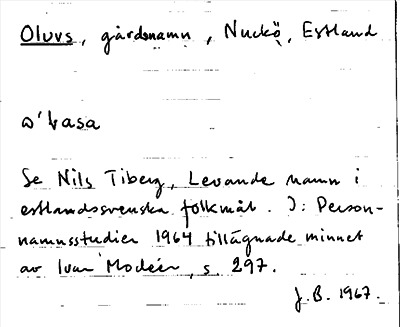 Oluvs, gårdsnamn, Nuckö, Estland
Se Nils Tiberg, Levande namn i
estlandssvenska folkmål. I: Person-
namnsstudier 1964 tillägnade minnet
av Ivar Modéer, s. 297.
J.B. 1967.